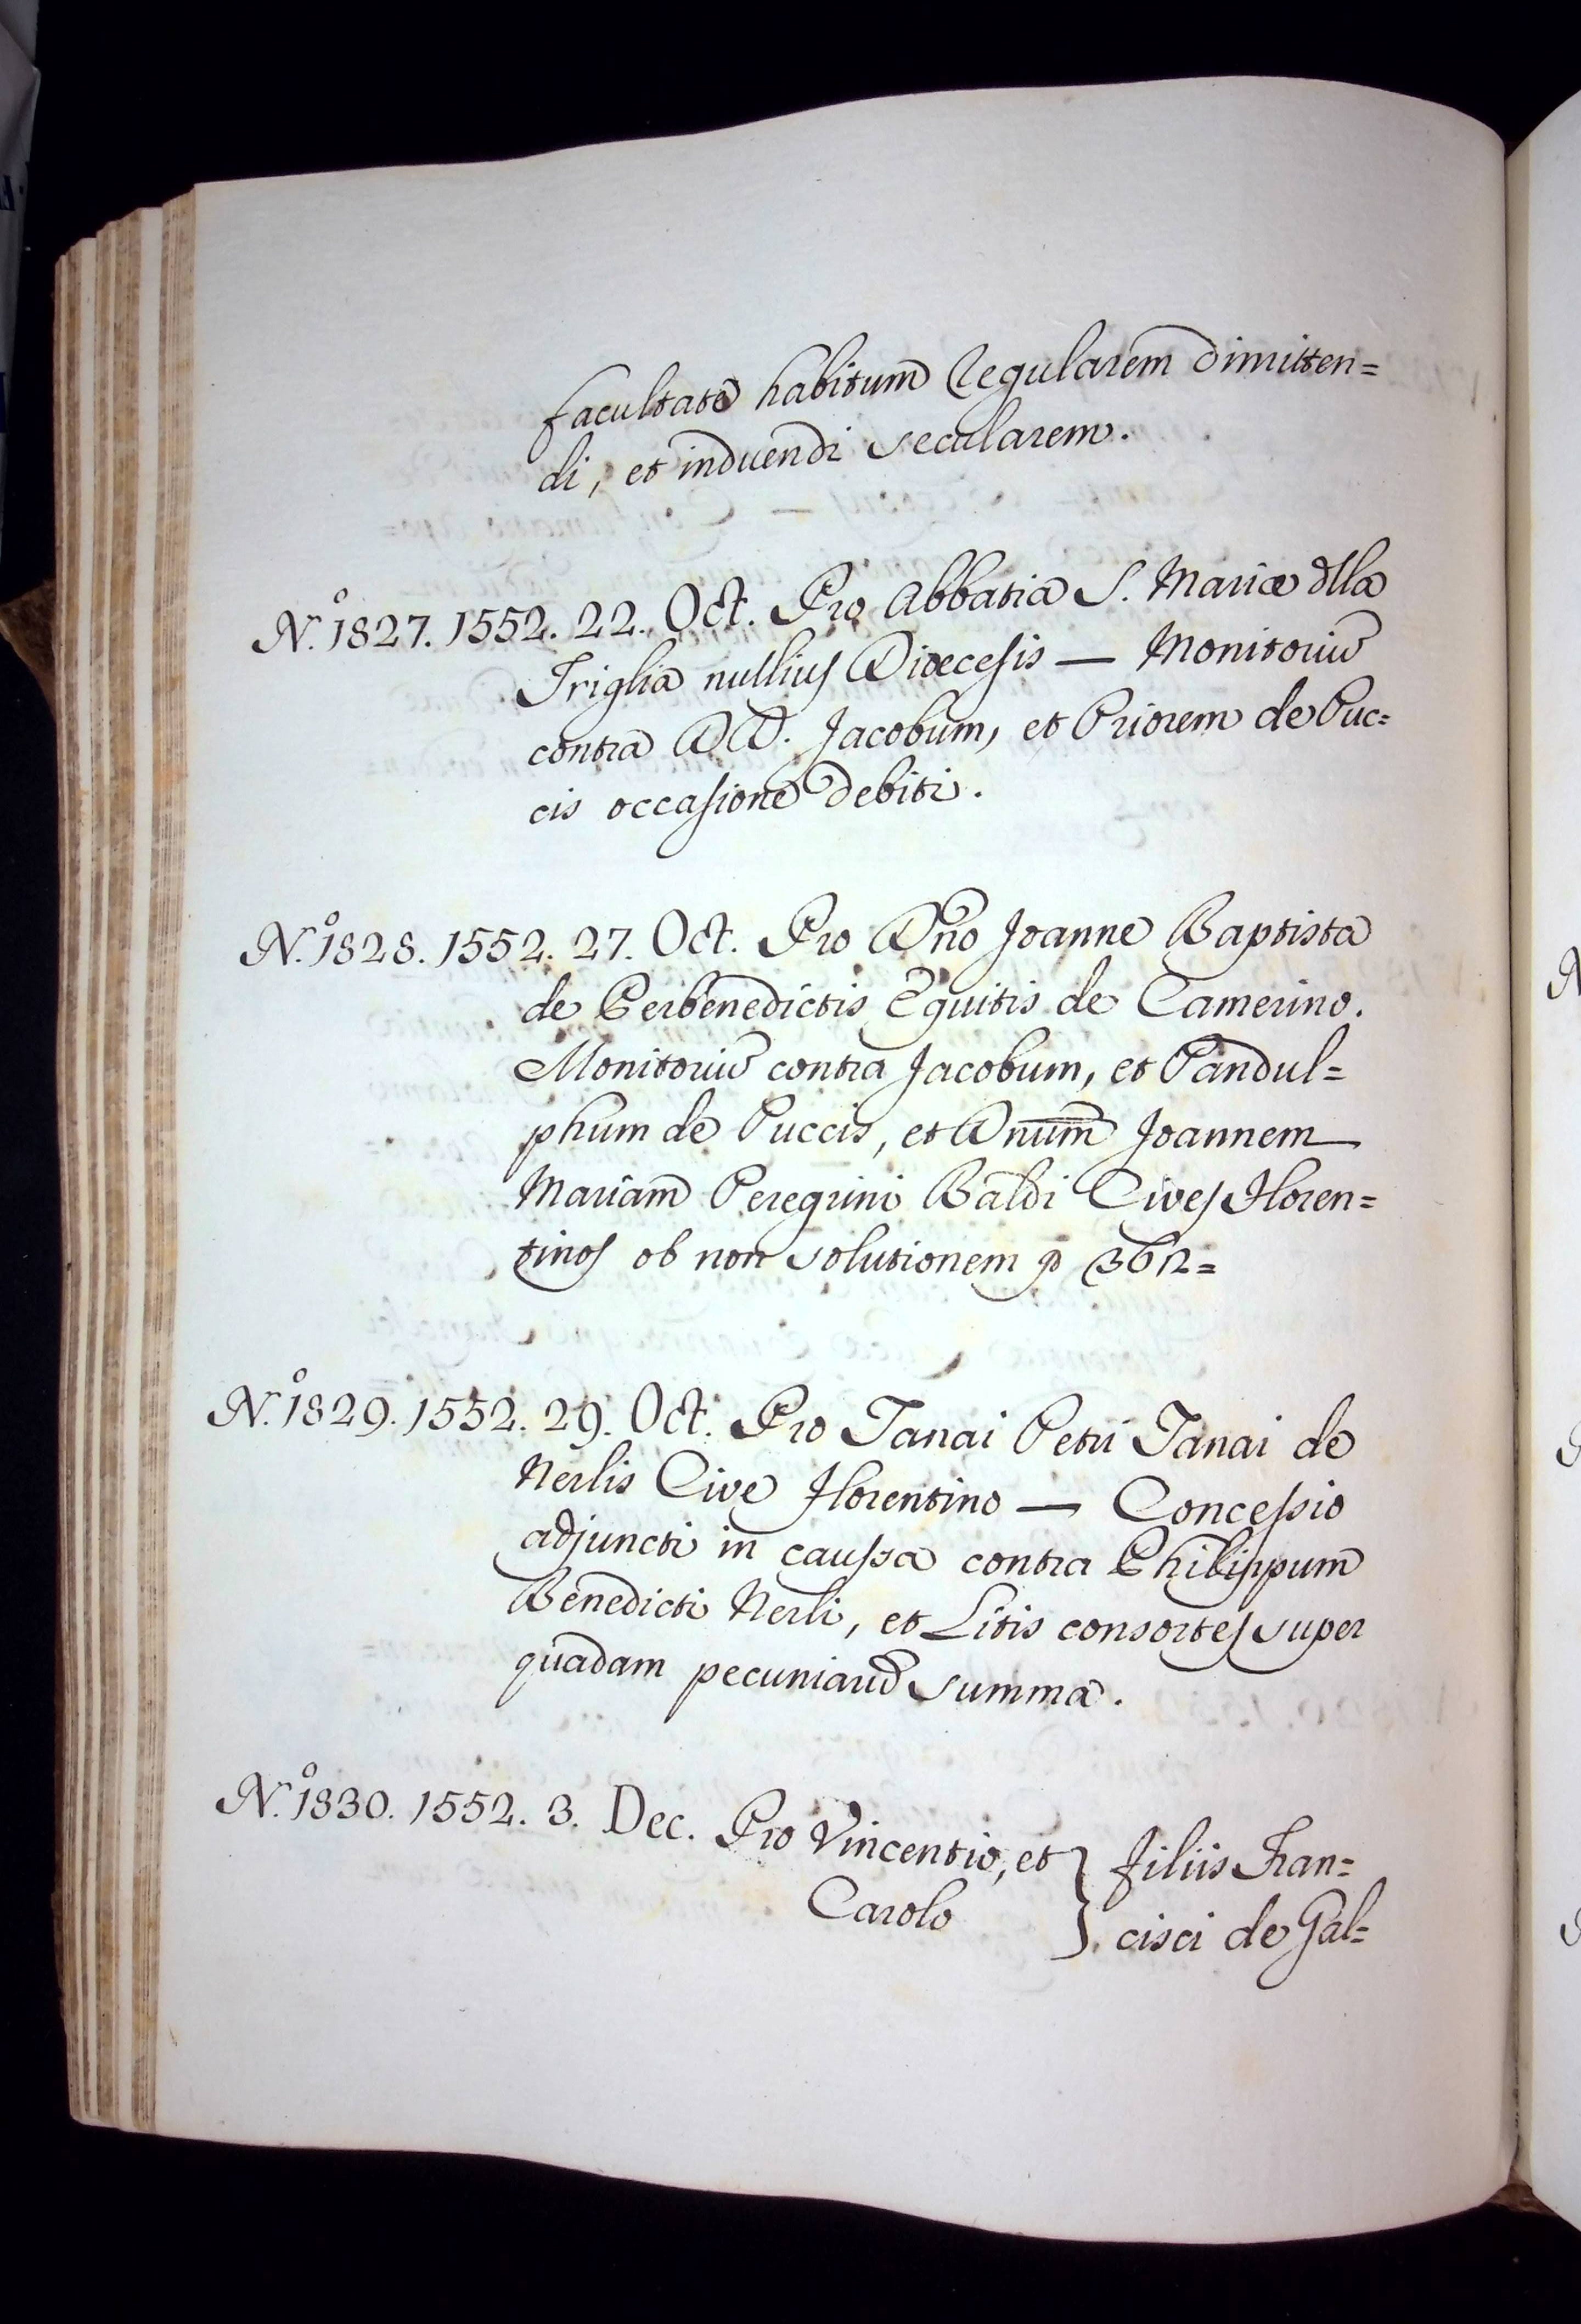 facultate habitum Regularem dimitten=
di, et induendi secularem.
N.º 1827. 1552. 22. Oct. Pro Abbatia S. Mariæ dlla
Triglia nullius Diœcesis — Monitoriũ
contra DD. Jacobum, et Priorem de Puc=
cis occasione debiti.
N.º 1828. 1552. 27. Oct. Pro Dño Joanne Baptista
de Perbenedictis Equitis de Camerino.
Monitoriũ contra Jacobum, et Pandul=
phum de Puccis, et Dnum̃ Joannem
Mariam Peregrini Baldi Cives Floren=
tinos ob non solutionem
N.º 1829. 1552. 29. Oct. Pro Tanai Petri Tanai de
Nerlis Cive Florentino — Concessio
adjuncti in caussa contra Philippum
Benedicti Nerli, et Litis consortes super
quadam pecuniarũ summa.
N.º 1830. 1552. 3. Dec. Pro Vincentio, et } filiis Fran=
Carolo } cisci de Gal=